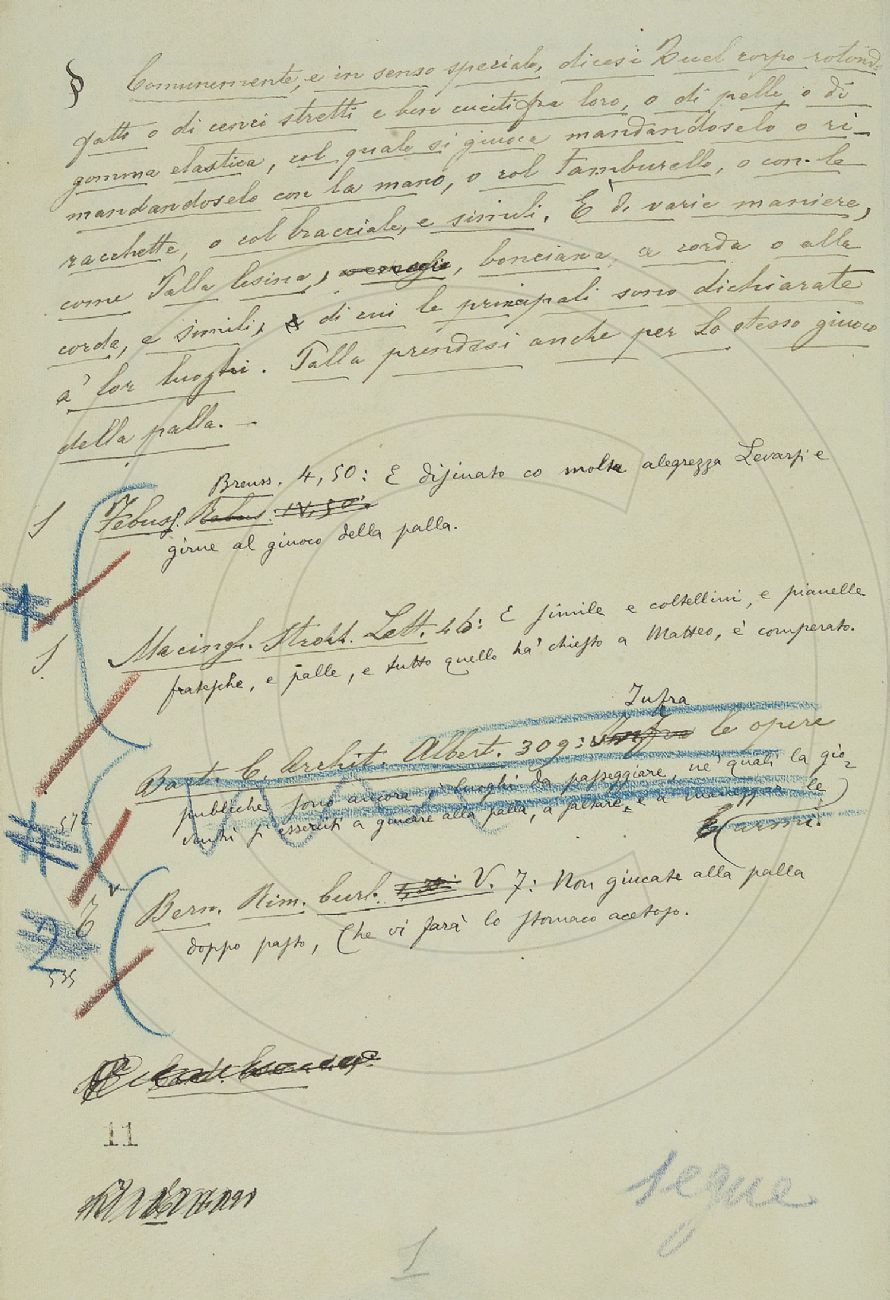 § Comunemente, e in senso speciale, dicesi Quel corpo rotondo
fatto o di cenci stretti e ben cuciti fra loro, o di pelle, o di
gomma elastica, col quale si giuoca mandandoselo o ri-
mandandoselo con la mano, o col Tamburello, o con le
racchette, o col bracciale, e simili. È di varie maniere,
come Palla lesina, bonciana, a corda o alla
corda, e simili, di cui le principali sono dichiarate
a' lor luoghi. Palla prendesi anche per Lo stesso giuoco
della palla. —
Breus. 4, 50: E disinato co molta alegrezza Levarsi e
Febus.
girne al giuoco della palla.
Macingh. Strozz. Lett. 46: E simile e coltellini, e pianelle
fratesche, e palle, e tutto quello ha' chiesto a Matteo, è comperato.
Infra
Bart. C. Archit. Albert. 309: le opere
pubbliche sono ancora i luoghi da passeggiare, ne' quali la gio-
ventù si eserciti a giucare alla palla, a saltare, e a maneggiar le
armi.
Bern. Rim. burl. V. 7: Non giucate alla palla
doppo pasto, Che vi farà lo stomaco acetoso.
535
11
segue
1